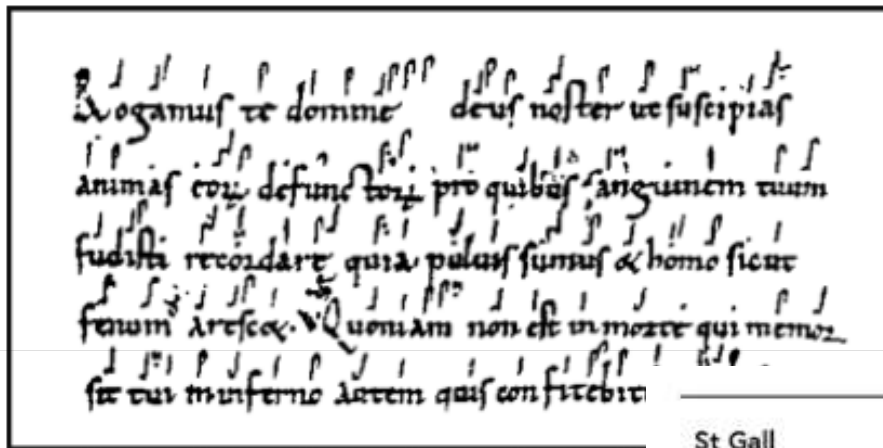 Rogamus te domine deus noster ut suscipias
animas eorum defunctorum pro quibus sanguinem tuum
fudisti recordare quia puluis sumus & homo sicut
fenum aresc&. V Quoniam non est in morte qui memor
sit tui in inferno autem quis confitebit
St Gall